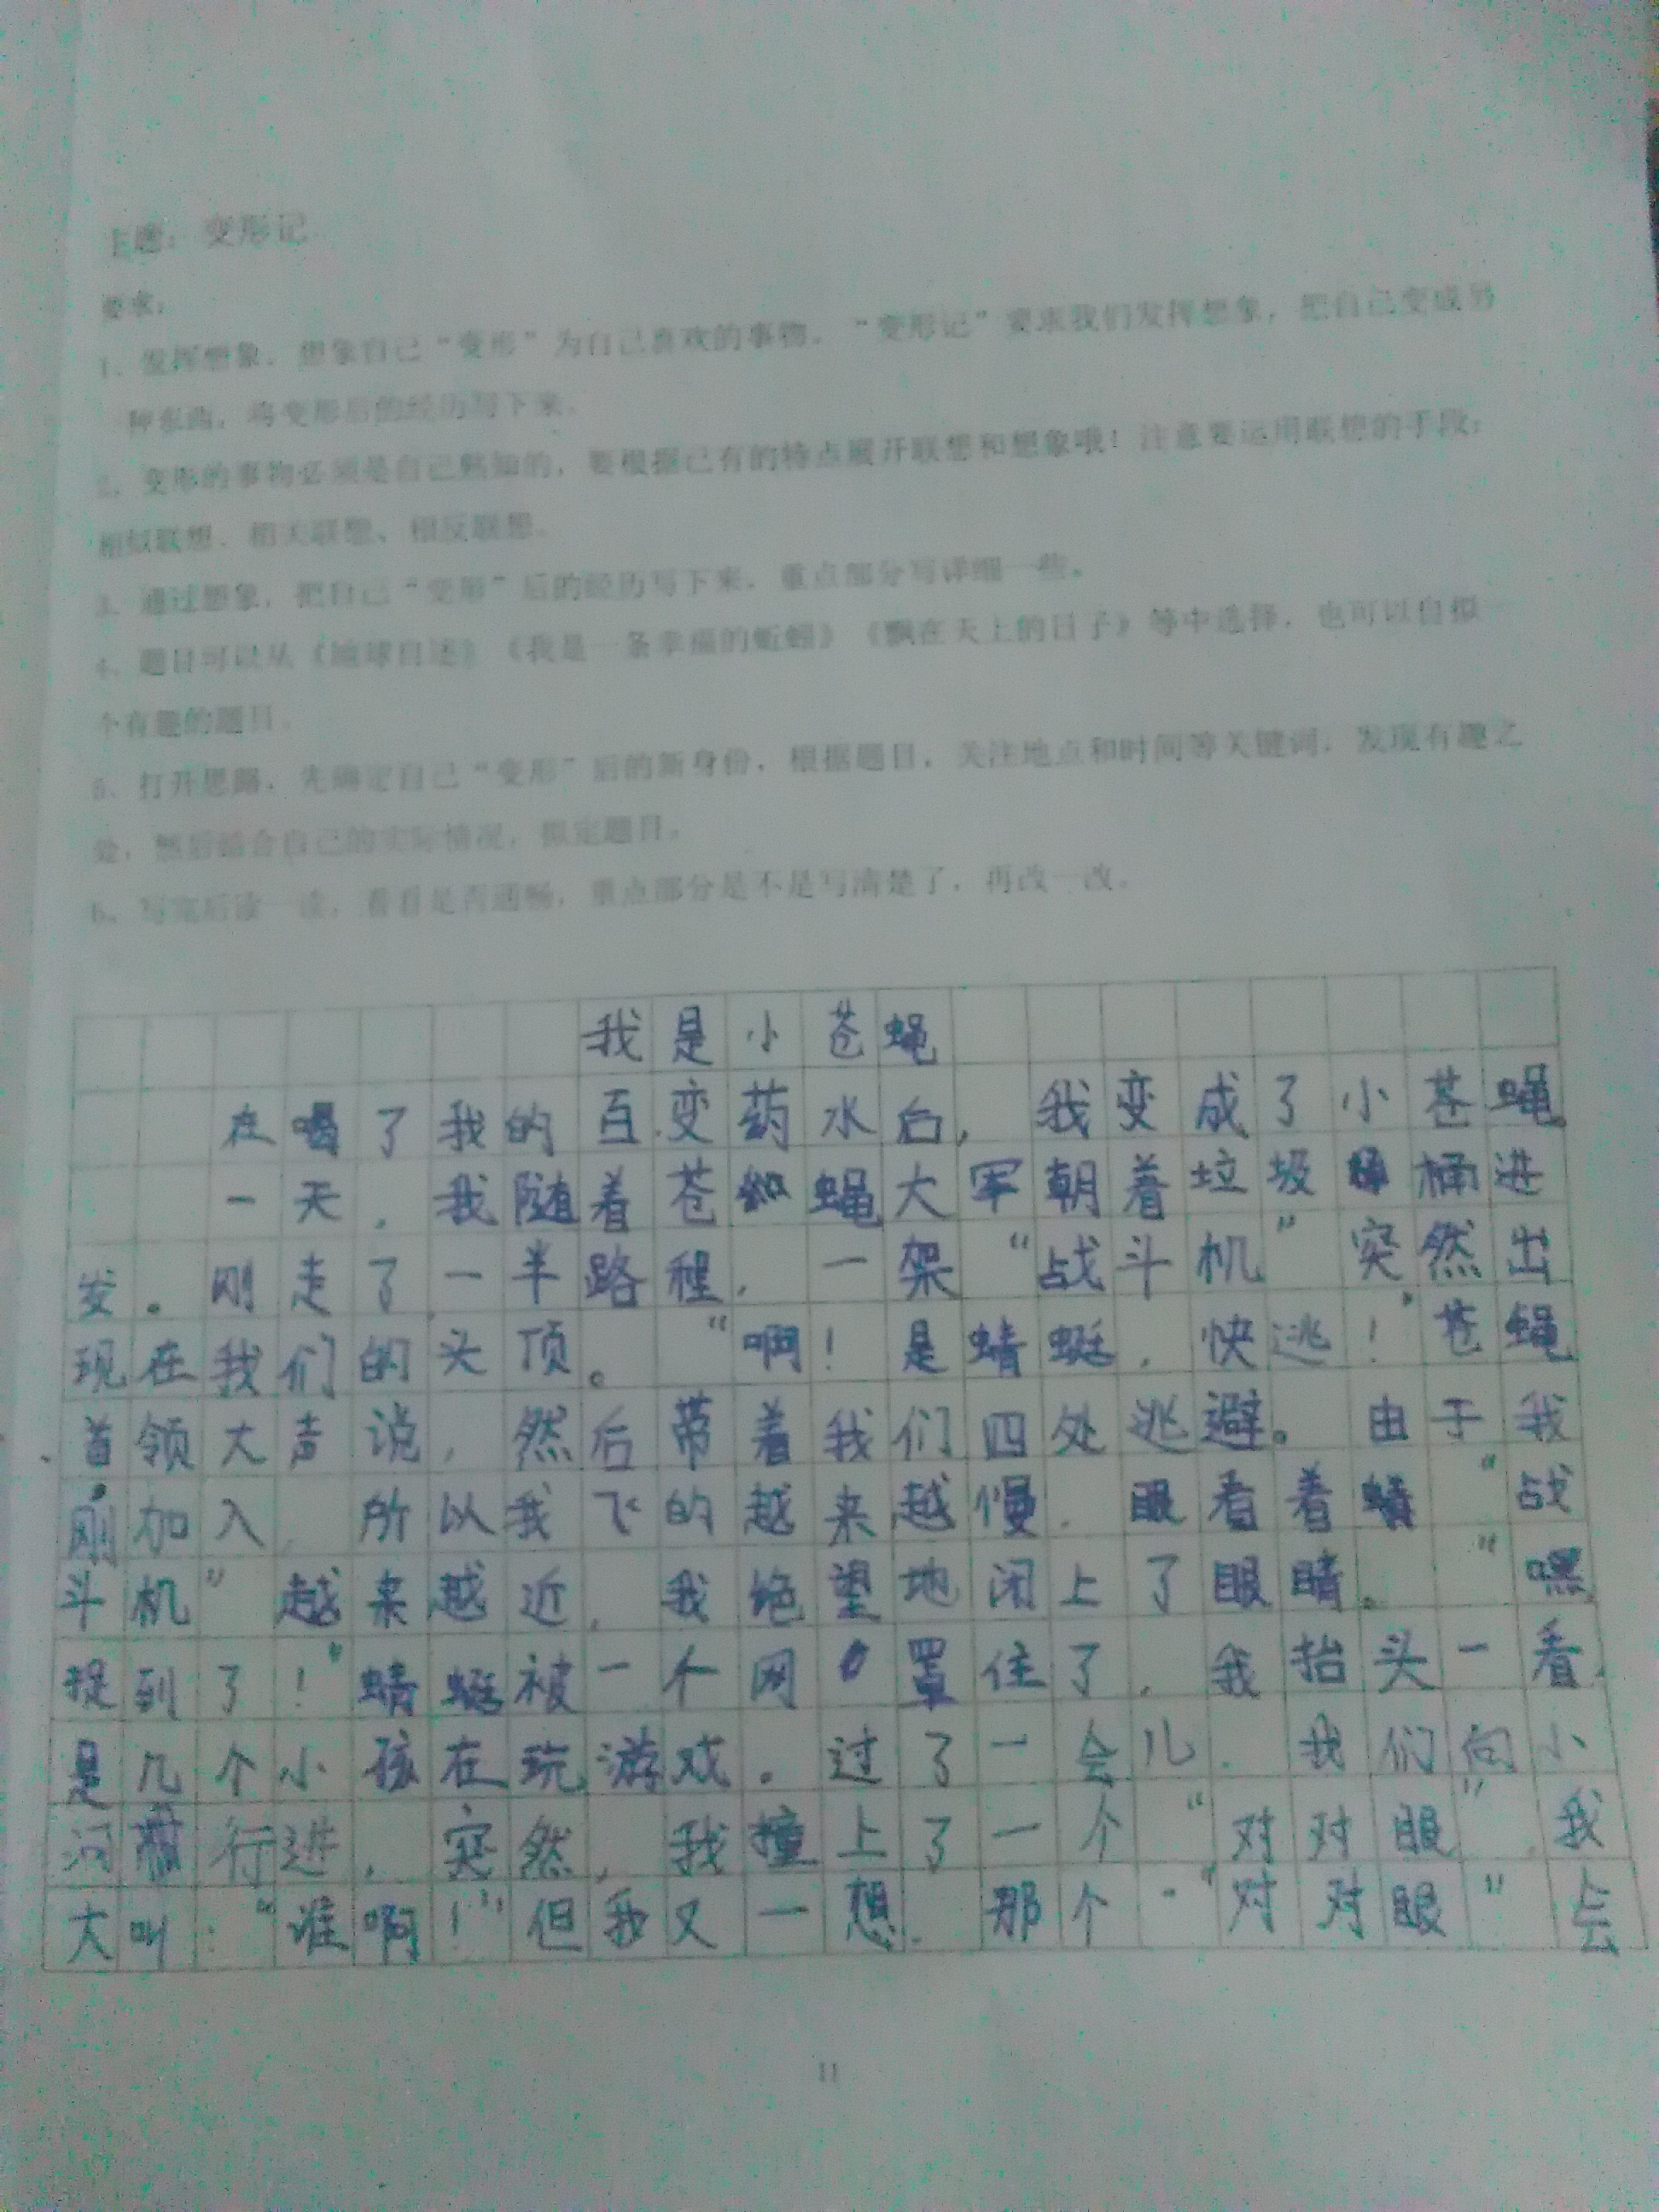 主题：变形记
要求：
1、发挥想象，想象自己“变形”为自己喜欢的事物。“变形记”要求我们发挥想象，把自己变成另
一种东西，将变形后的经历写下来。
2、变形的事物必须是自己熟知的，要根据已有的特点展开联想和想象哦！注意要运用联想的手段：
相似联想、相关联想、相反联想。
3、通过想象，把自己“变形”后的经历写下来，重点部分写详细一些。
4、题目可以从《地球自述》《我是一条幸福的蚯蚓》《飘在天上的日子》等中选择，也可以自拟一
个有趣的题目。
5、打开思路，先确定自己“变形”后的新身份，根据题目，关注地点和时间等关键词，发现有趣之
处，然后结合自己的实际情况，拟定题目。
6、写完后读一读，看看是否通畅，重点部分是不是写清楚了，再改一改。
我是小苍蝇
在喝了我的百变药水后，我变成了小苍蝇。
一天，我随着苍蝇大军朝着垃圾桶进
发。刚走了一半路程，一架“战斗机”突然出
现在我们的头顶。“啊！是蜻蜓，快逃！”苍蝇
首领大声说，然后带着我们四处逃避。由于我
刚加入，所以我飞的越来越慢，眼看着“战
斗机”越来越近，我绝望地闭上了眼睛。“嘿，
捉到了！”蜻蜓被一个网罩住了，我抬头一看，
是几个小孩在玩游戏。过了一会儿，我们向小
河行进，突然，我撞上了一个“对对眼”，我
大叫：“谁啊！”但我又一想，那个“对对眼”会
11